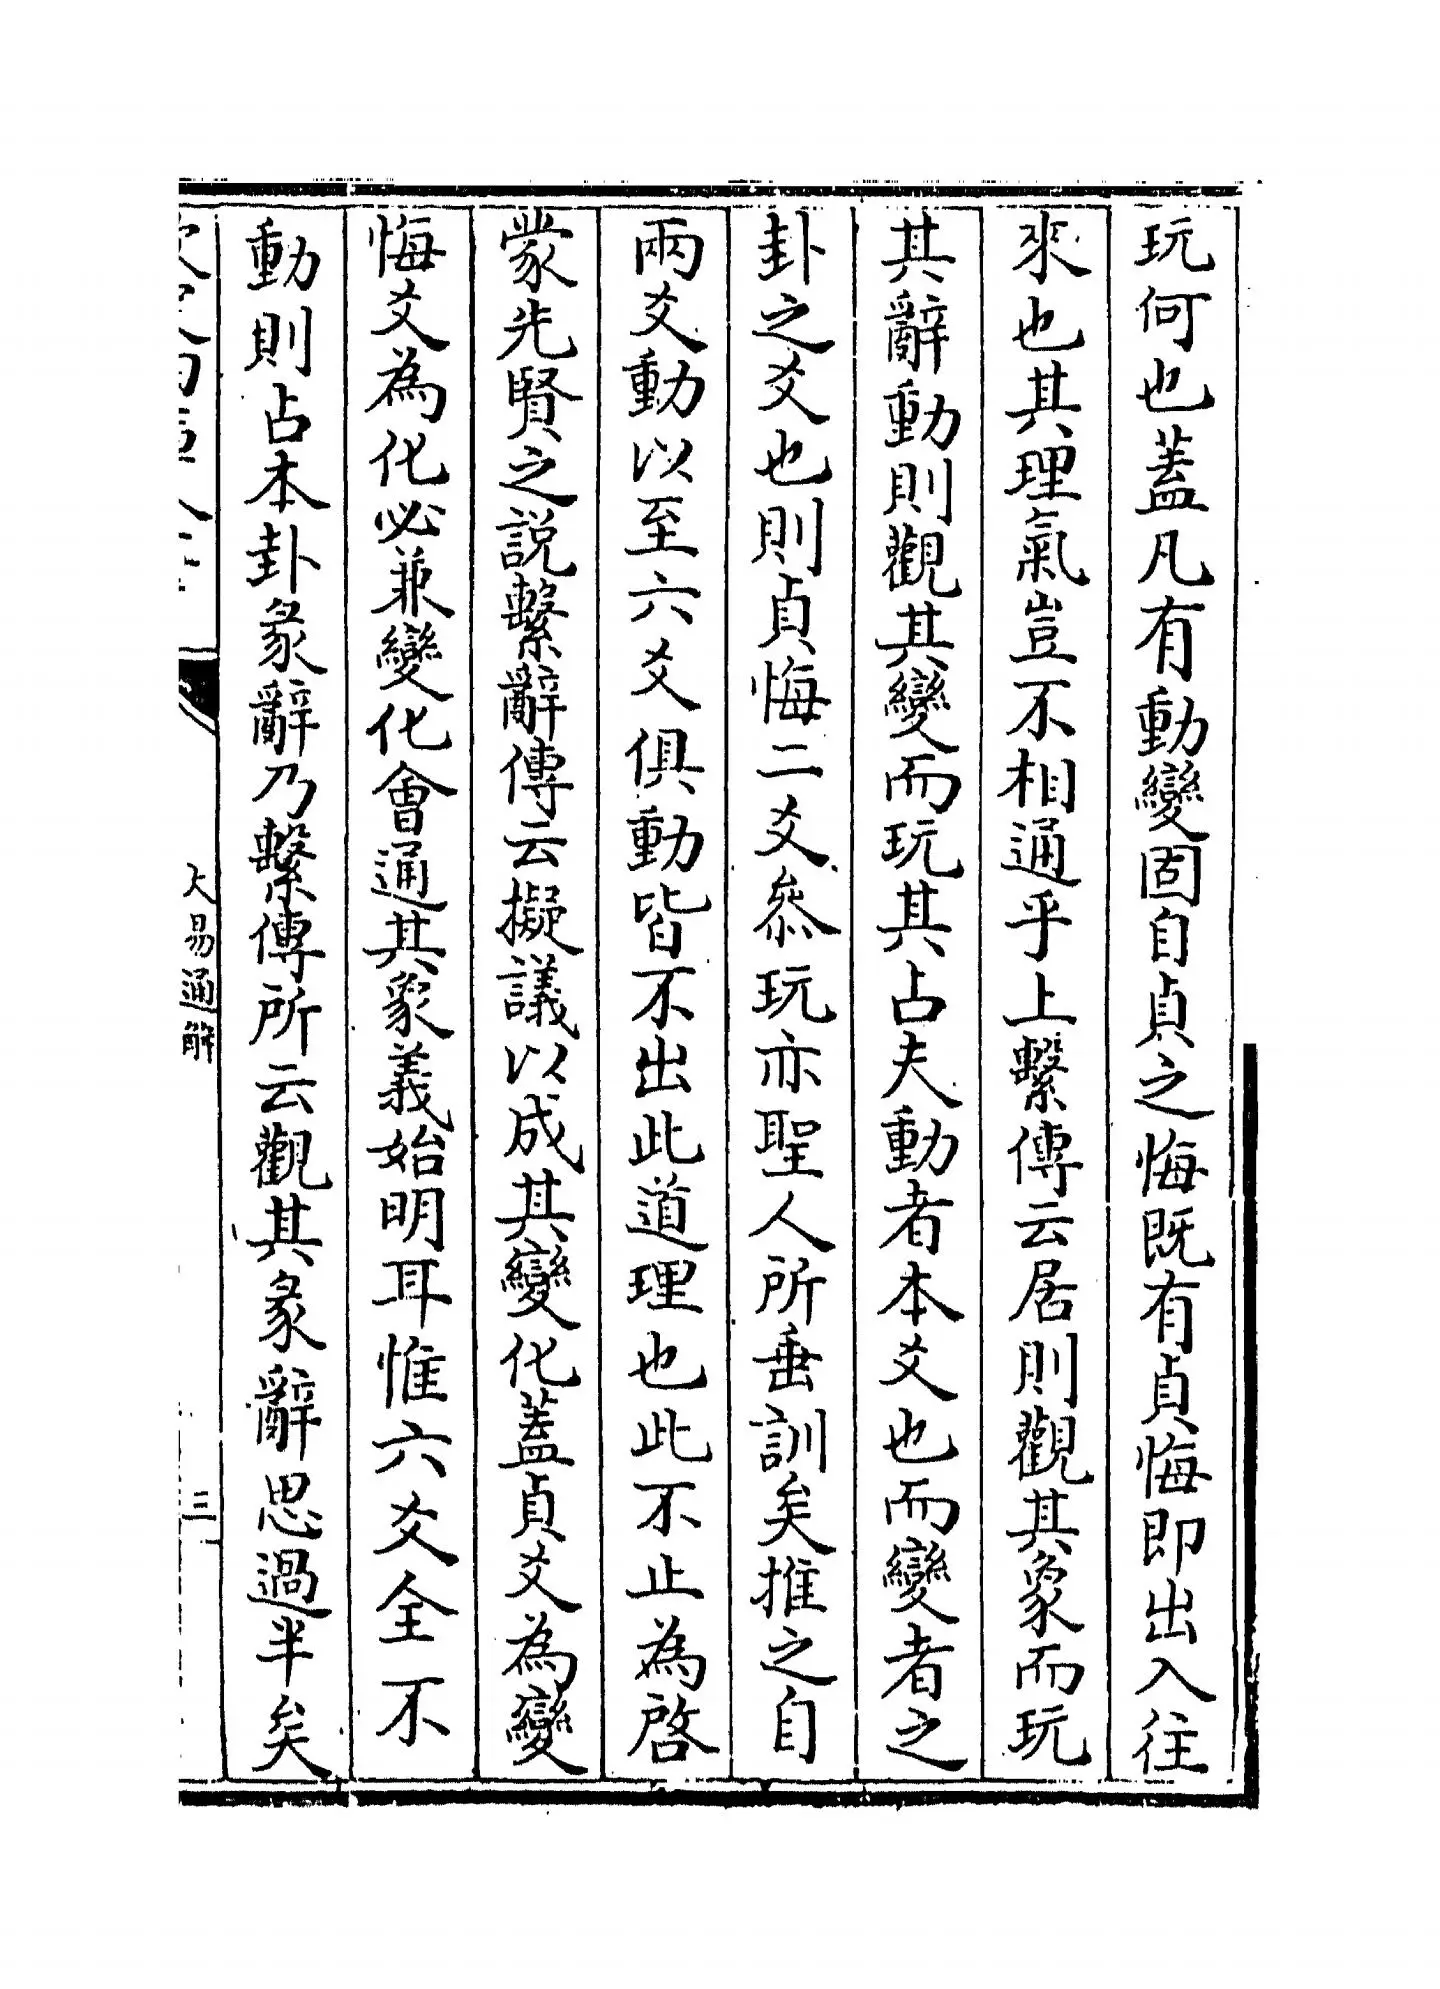 玩何也蓋凡有動變固自貞之悔既有貞悔即出入往
來也其理氣豈不相通乎上繫傳云居則觀其象而玩
其辭動則觀其變而玩其占夫動者本爻也而變者之
卦之爻也則貞悔二爻叅玩亦聖人所垂訓矣推之自
兩爻動以至六爻俱動皆不出此道理也此不止為啓
蒙先賢之説繫辭傳云擬議以成其變化蓋貞爻為變
悔爻為化必兼變化會通其象義始明耳惟六爻全不
動則占本卦彖辭乃繫傳所云觀其彖辭思過半矣
大易通解
三